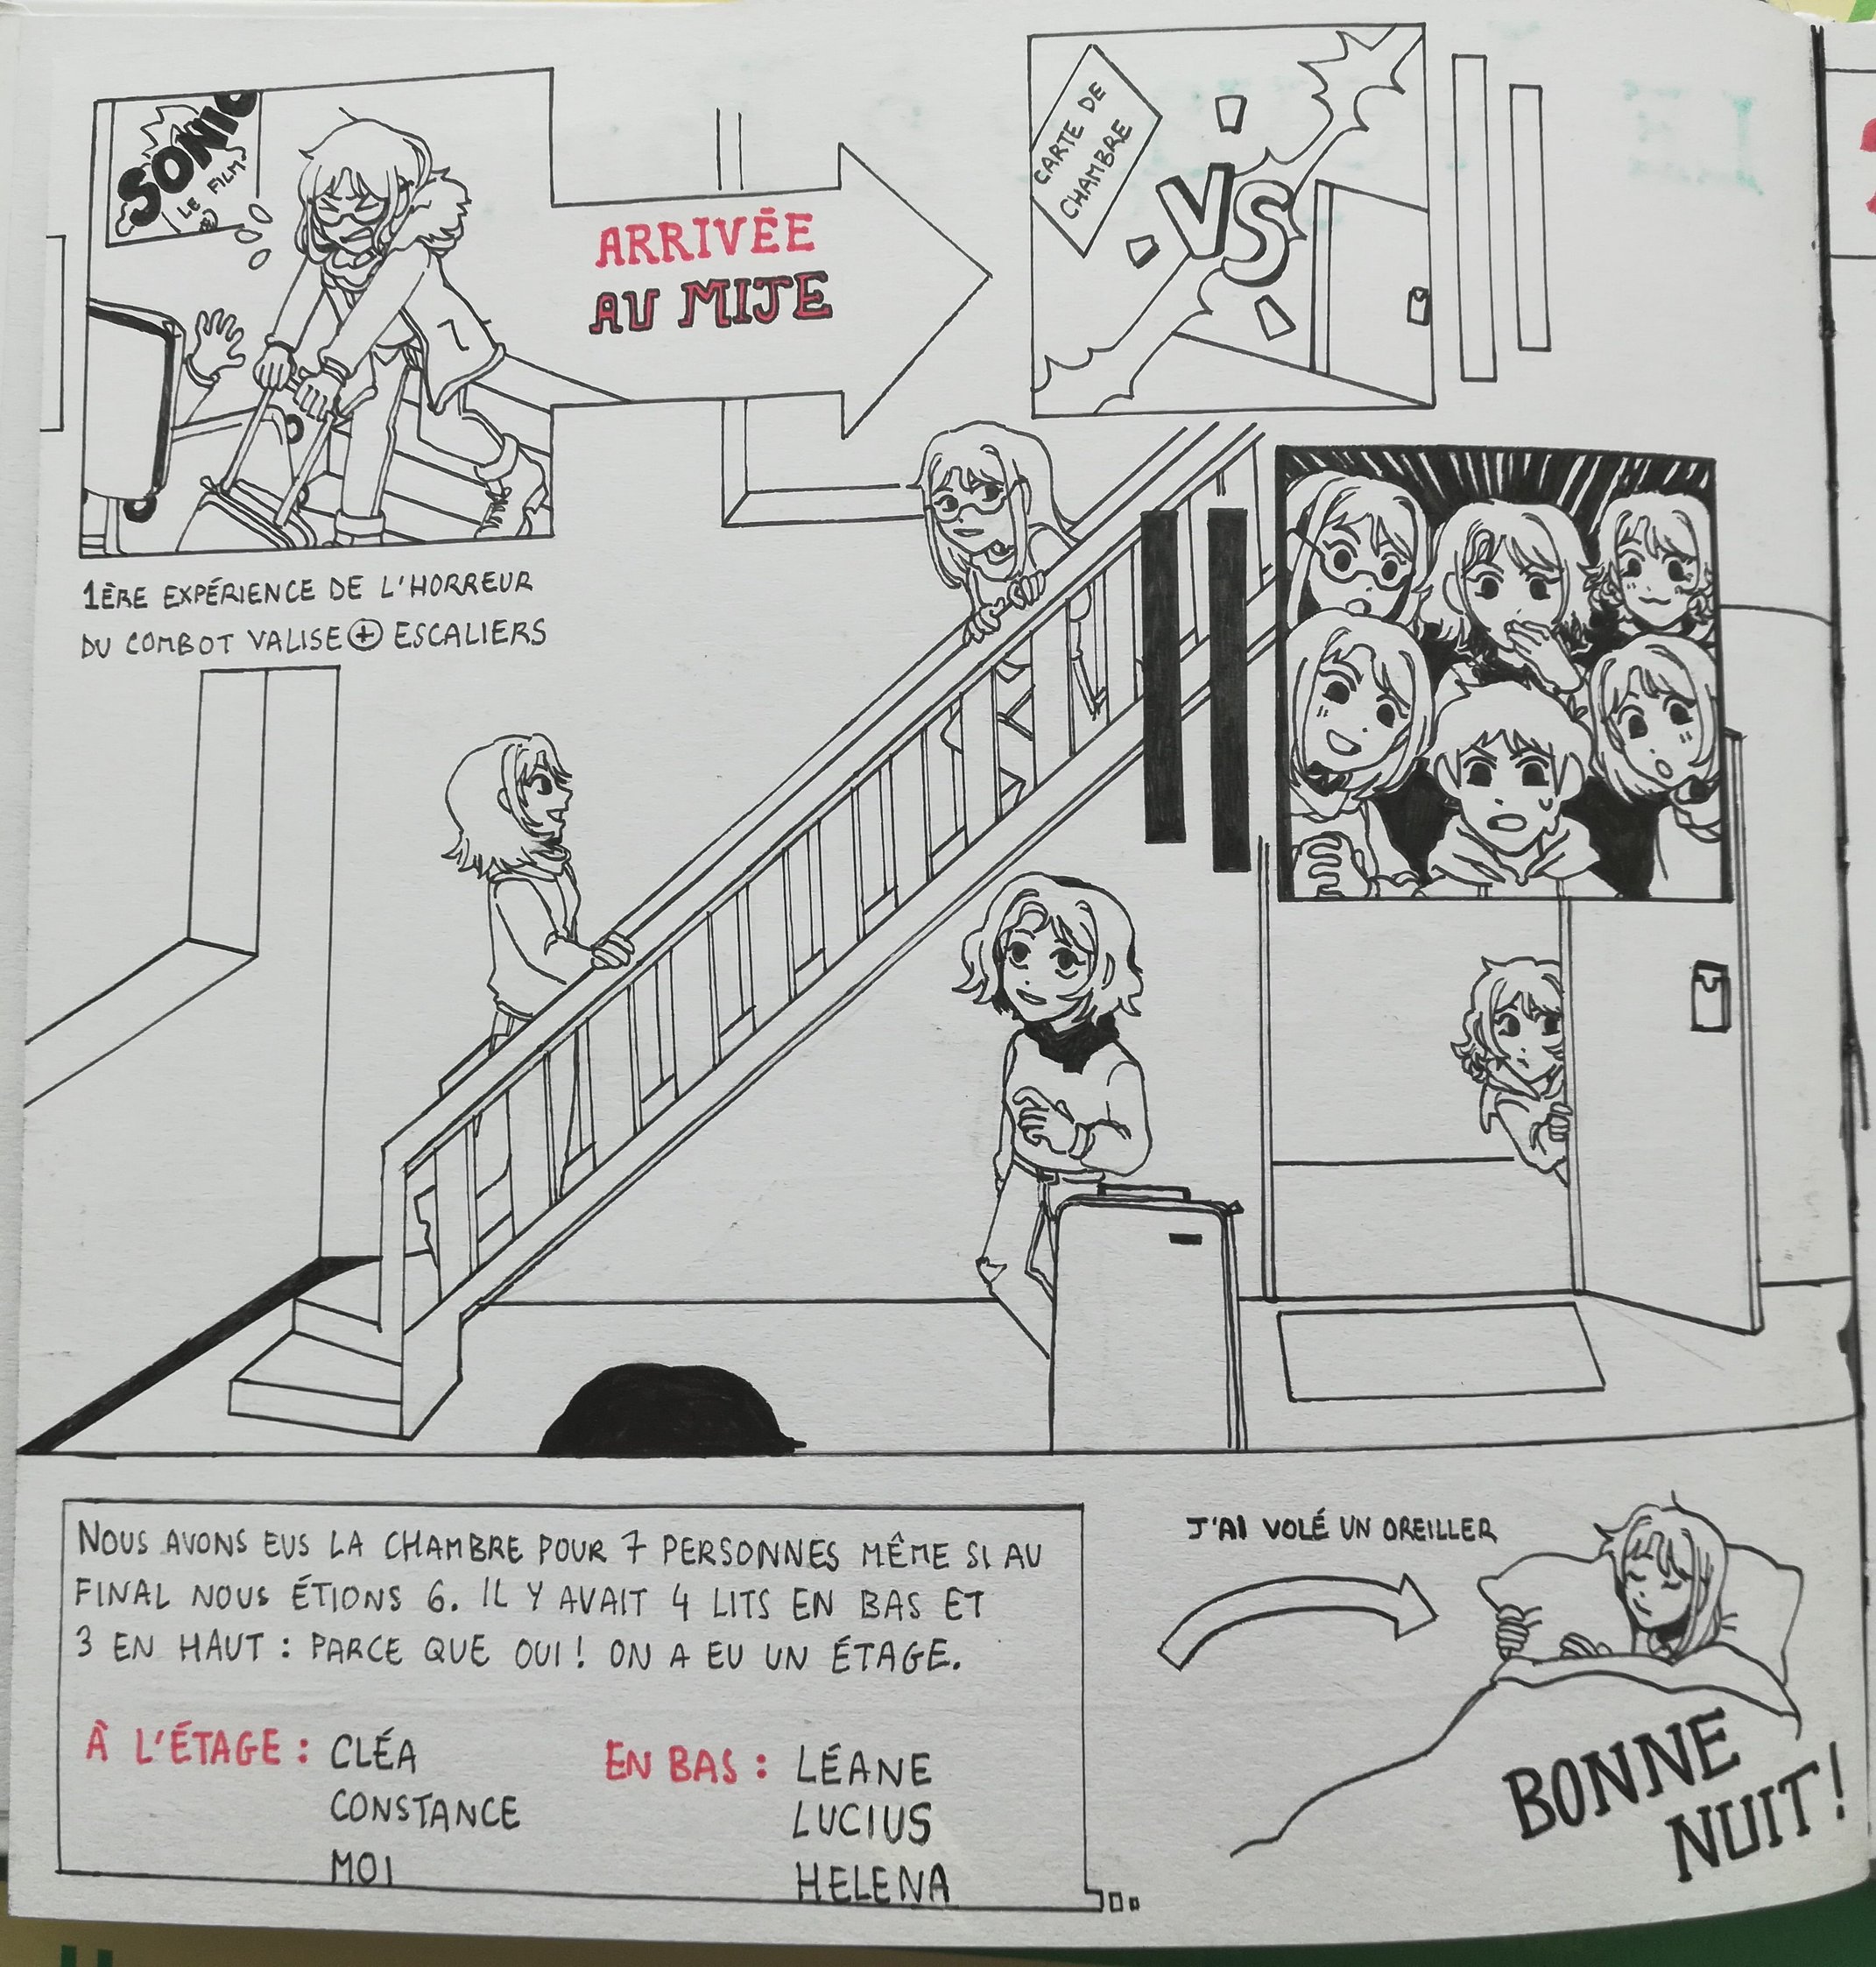 SONIC
LE FILM
ARRIVÉE
AU MIJE
CARTE DE
CHAMBRE
VS
1ÈRE EXPÉRIENCE DE L'HORREUR
DU COMBOT VALISE + ESCALIERS
NOUS AVONS EUS LA CHAMBRE POUR 7 PERSONNES MÊME SI AU
FINAL NOUS ÉTIONS 6. IL Y AVAIT 4 LITS EN BAS ET
3 EN HAUT : PARCE QUE OUI ! ON A EU UN ÉTAGE.
À L'ÉTAGE : CLÉA
CONSTANCE
MOI
EN BAS : LÉANE
LUCIUS
HELENA
J'AI VOLÉ UN OREILLER
BONNE
NUIT !